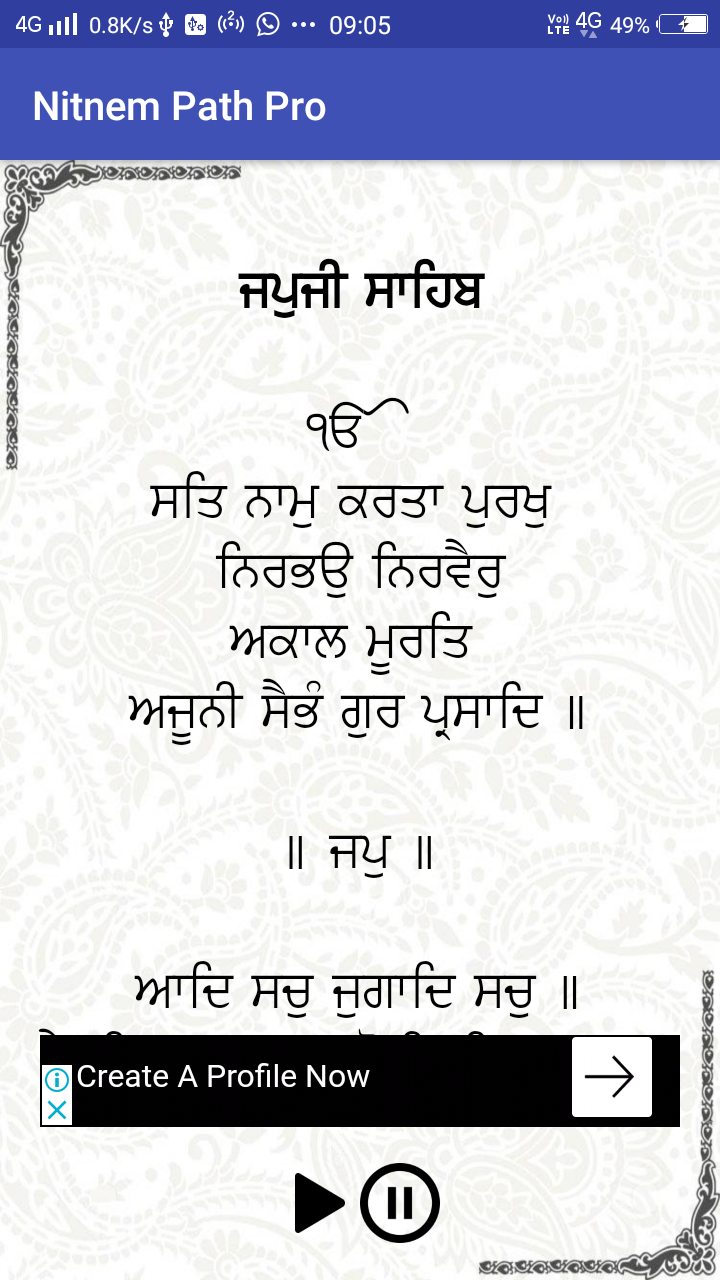 4G 0.8K/s 2 09:05 Vo)) LTE 4G 49%
Nitnem Path Pro
ਜਪੁਜੀ ਸਾਹਿਬ
ੴ
ਸਤਿ ਨਾਮੁ ਕਰਤਾ ਪੁਰਖੁ
ਨਿਰਭਉ ਨਿਰਵੈਰੁ
ਅਕਾਲ ਮੂਰਤਿ
ਅਜੂਨੀ ਸੈਭੰ ਗੁਰ ਪ੍ਰਸਾਦਿ ॥
॥ ਜਪੁ ॥
ਆਦਿ ਸਚੁ ਜੁਗਾਦਿ ਸਚੁ ॥
Create A Profile Now